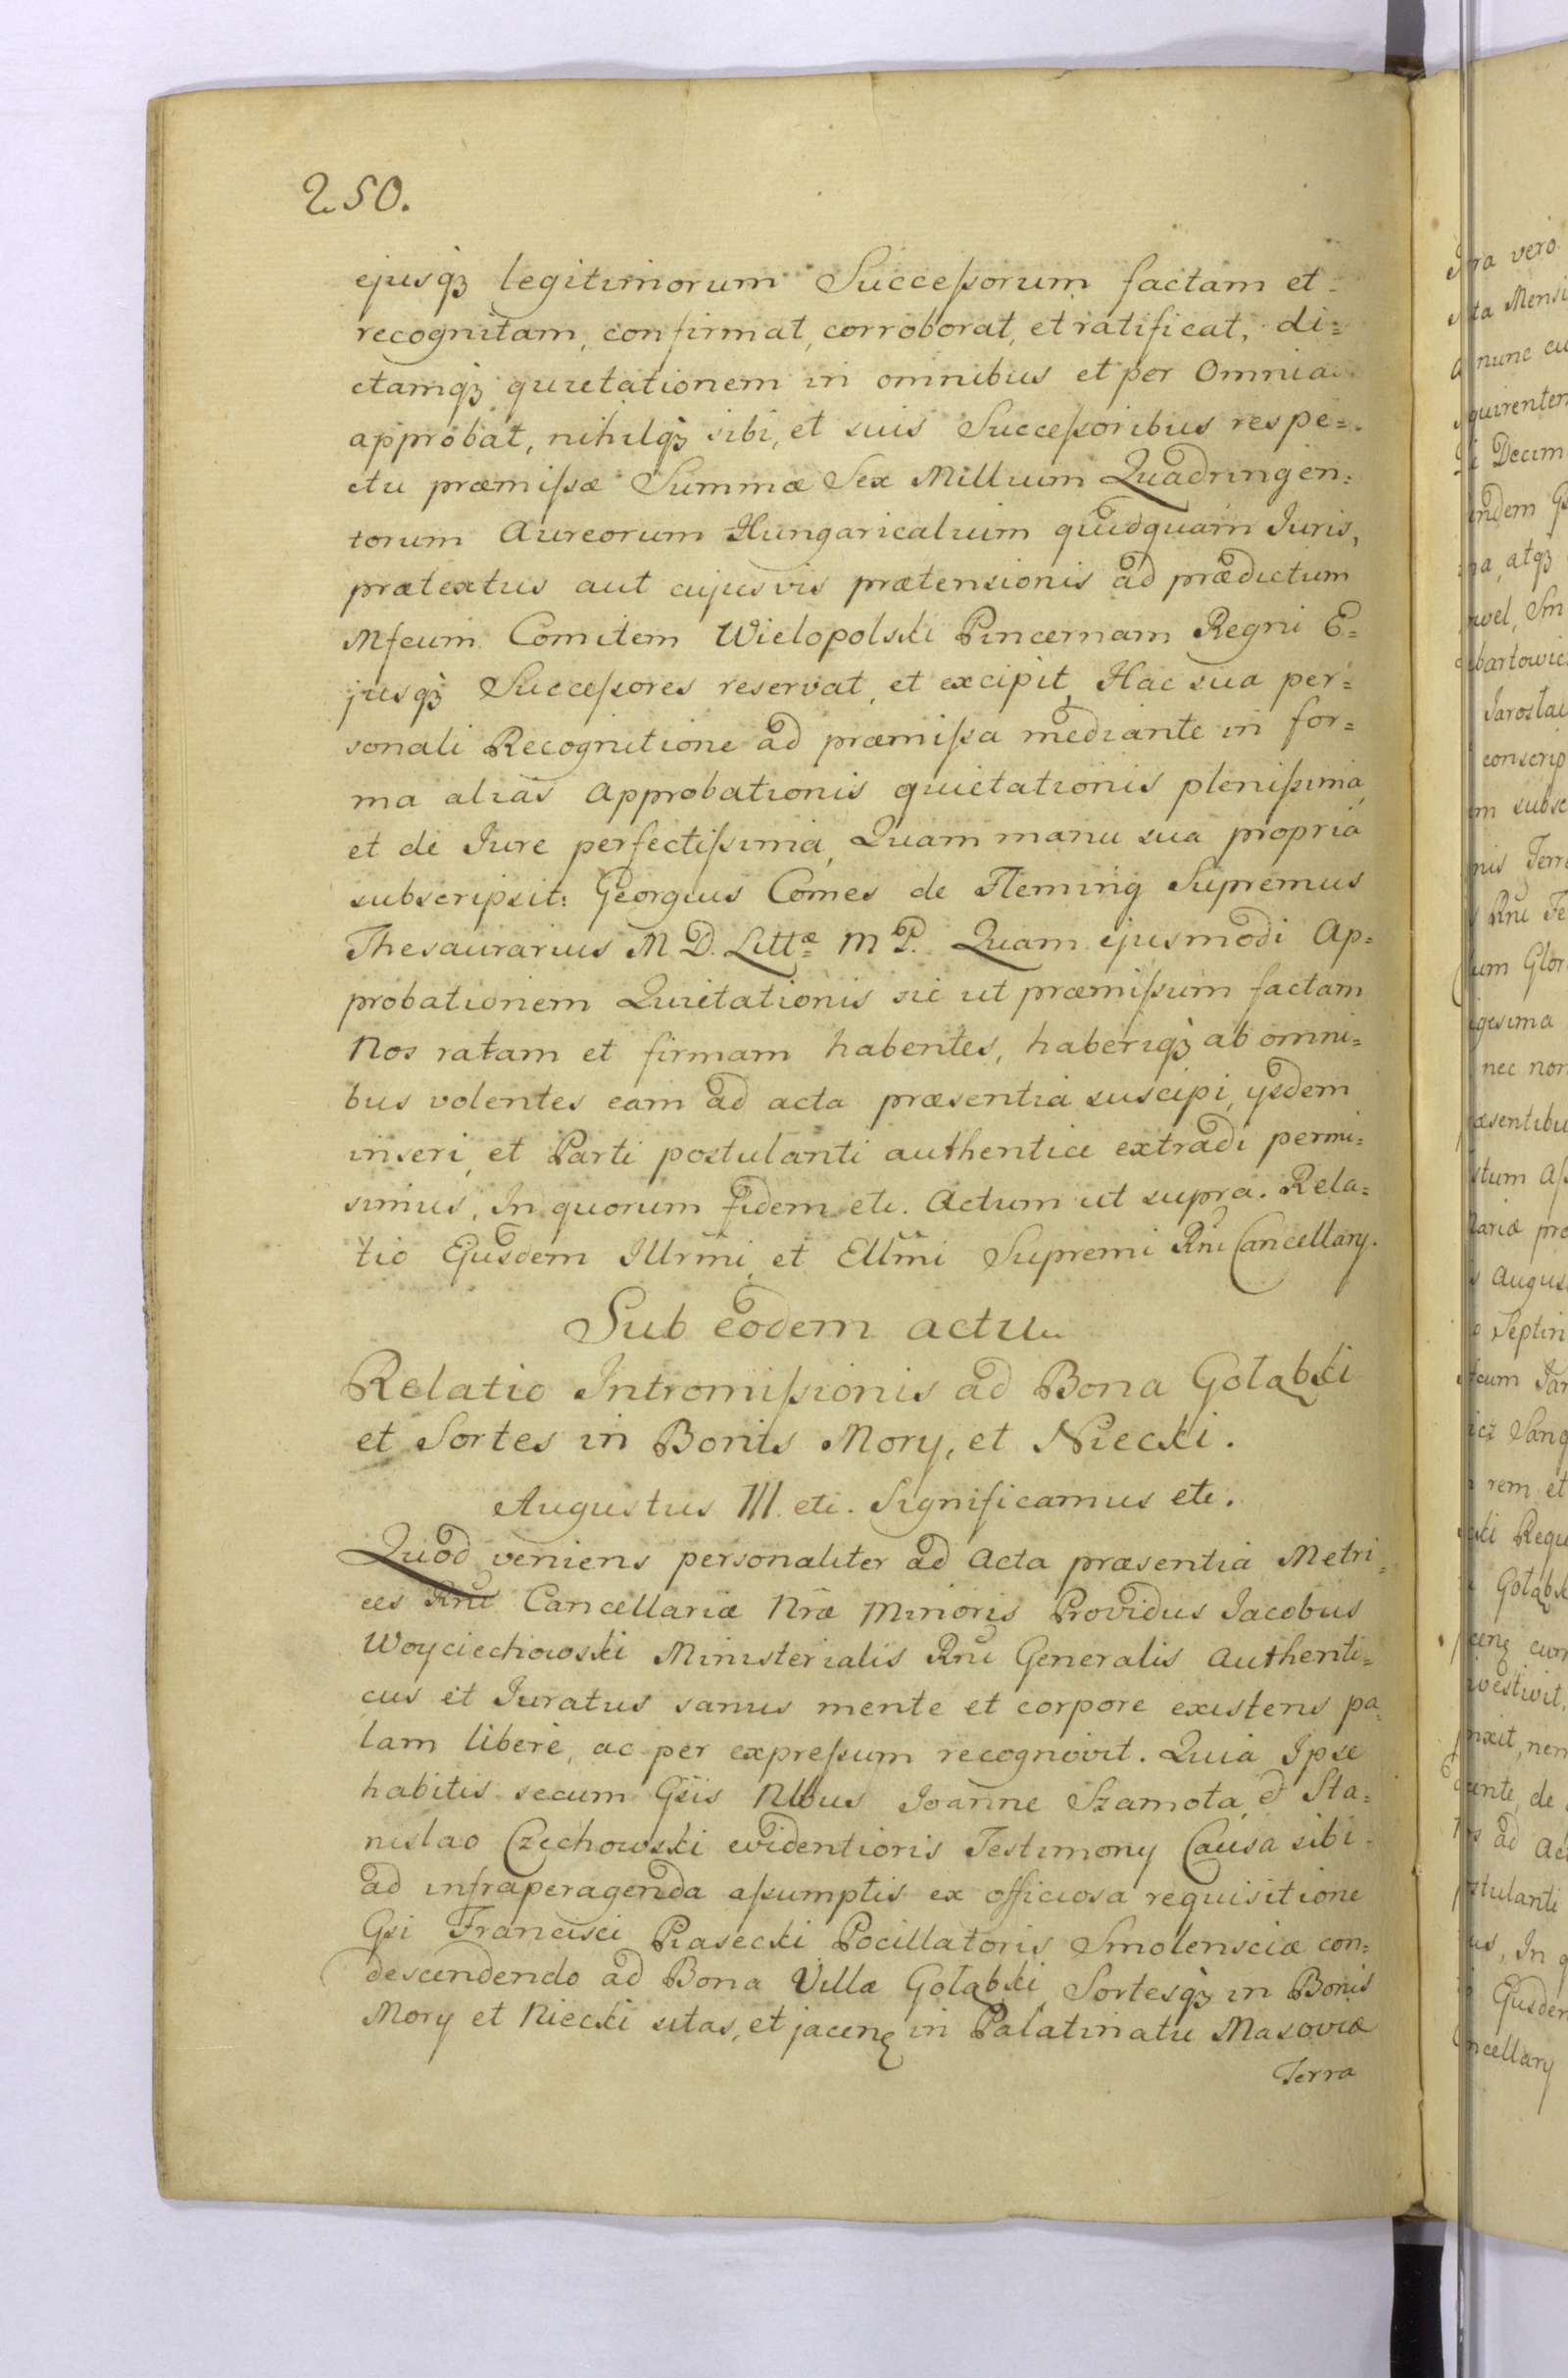 250.
ejusqȝ legitimorum Succeſsorum factam et
recognitam, confirmat, corroborat, et ratificat, di=
ctamqȝ quietationem in omnibus et per Omnia
approbat, nihilqȝ sibi, et suis Succeſsoribus respe=
ctu præmiſsæ Summæ Sex Millium Quadringen=
torum Aureorum Hungaricalium quidquam Iuris,
prætextus aut cujusvis prætensionis ad prædictum
Mfcum Comitem Wielopolski Pincernam Regni E=
jusqȝ Succeſsores reservat, et excipit, Hac sua per=
sonali Recognitione ad præmiſsa mediante in for=
ma aliàs Approbationis quietationis pleniſsima,
et de Iure perfectiſsima, Quam manu sua propria
subscripsit: Georgius Comes de Fleming Supremus
Thesaurarius M. D. Littæ MP. Quam ejusmodi Ap=
probationem Quietationis sic ut præmiſsum factam
Nos ratam et firmam habentes, haberiqȝ ab omni=
bus volentes eam ad acta præsentia suscipi, ysdem
inseri, et Parti postulanti authentice extradi permi=
simus, In quorum fidem etc. Actum ut supra. Rela=
tio Ejusdem Illrmi et Ellmi Supremi Rni Cancellary.
Sub eodem actu
Relatio Intromiſsionis ad Bona Gołąbki
et Sortes in Bonis Mory, et Niecki.
Augustus III. etc. Significamus etc.
Quod veniens personaliter ad Acta præsentia Metri=
ces Rni Cancellariæ Nræ Minoris Providus Jacobus
Woyciechowski Ministerialis Rni Generalis Authenti=
cus et Iuratus sanus mente et corpore existens pa=
lam liberè, ac per expreſsum recognovit. Quia Ipse
habitis secum Gsis Nlbus Joanne Szamota, & Sta=
nislao Czechowski evidentioris Testimony Causa sibi
ad infraperagenda aſsumptis ex officiosa requisitione
Gsi Francisci Piasecki Pocillatoris Smolensciæ con=
descendendo ad Bona Villæ Gołąbki Sortesqȝ in Bonis
Mory et Niecki sitas, et jacenꝫ in Palatinatu Masoviæ
Terra